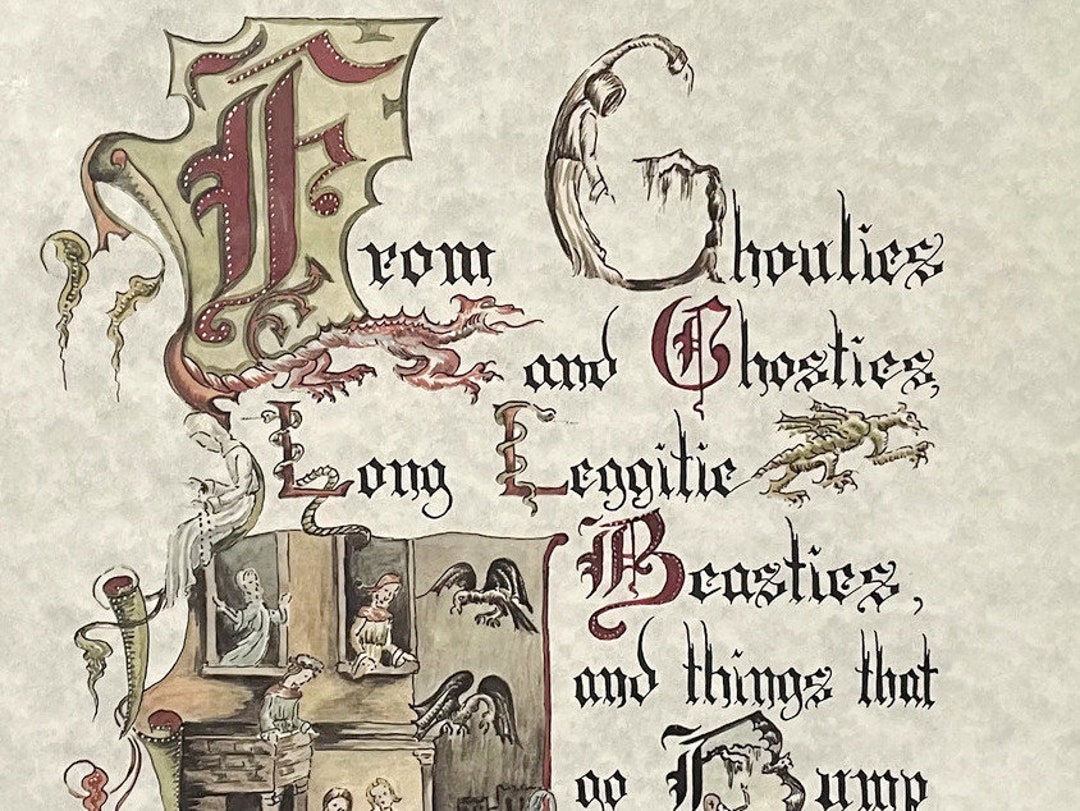 From Ghoulies
and Ghosties,
Long Leggitie
Beasties,
and things that
go Bump